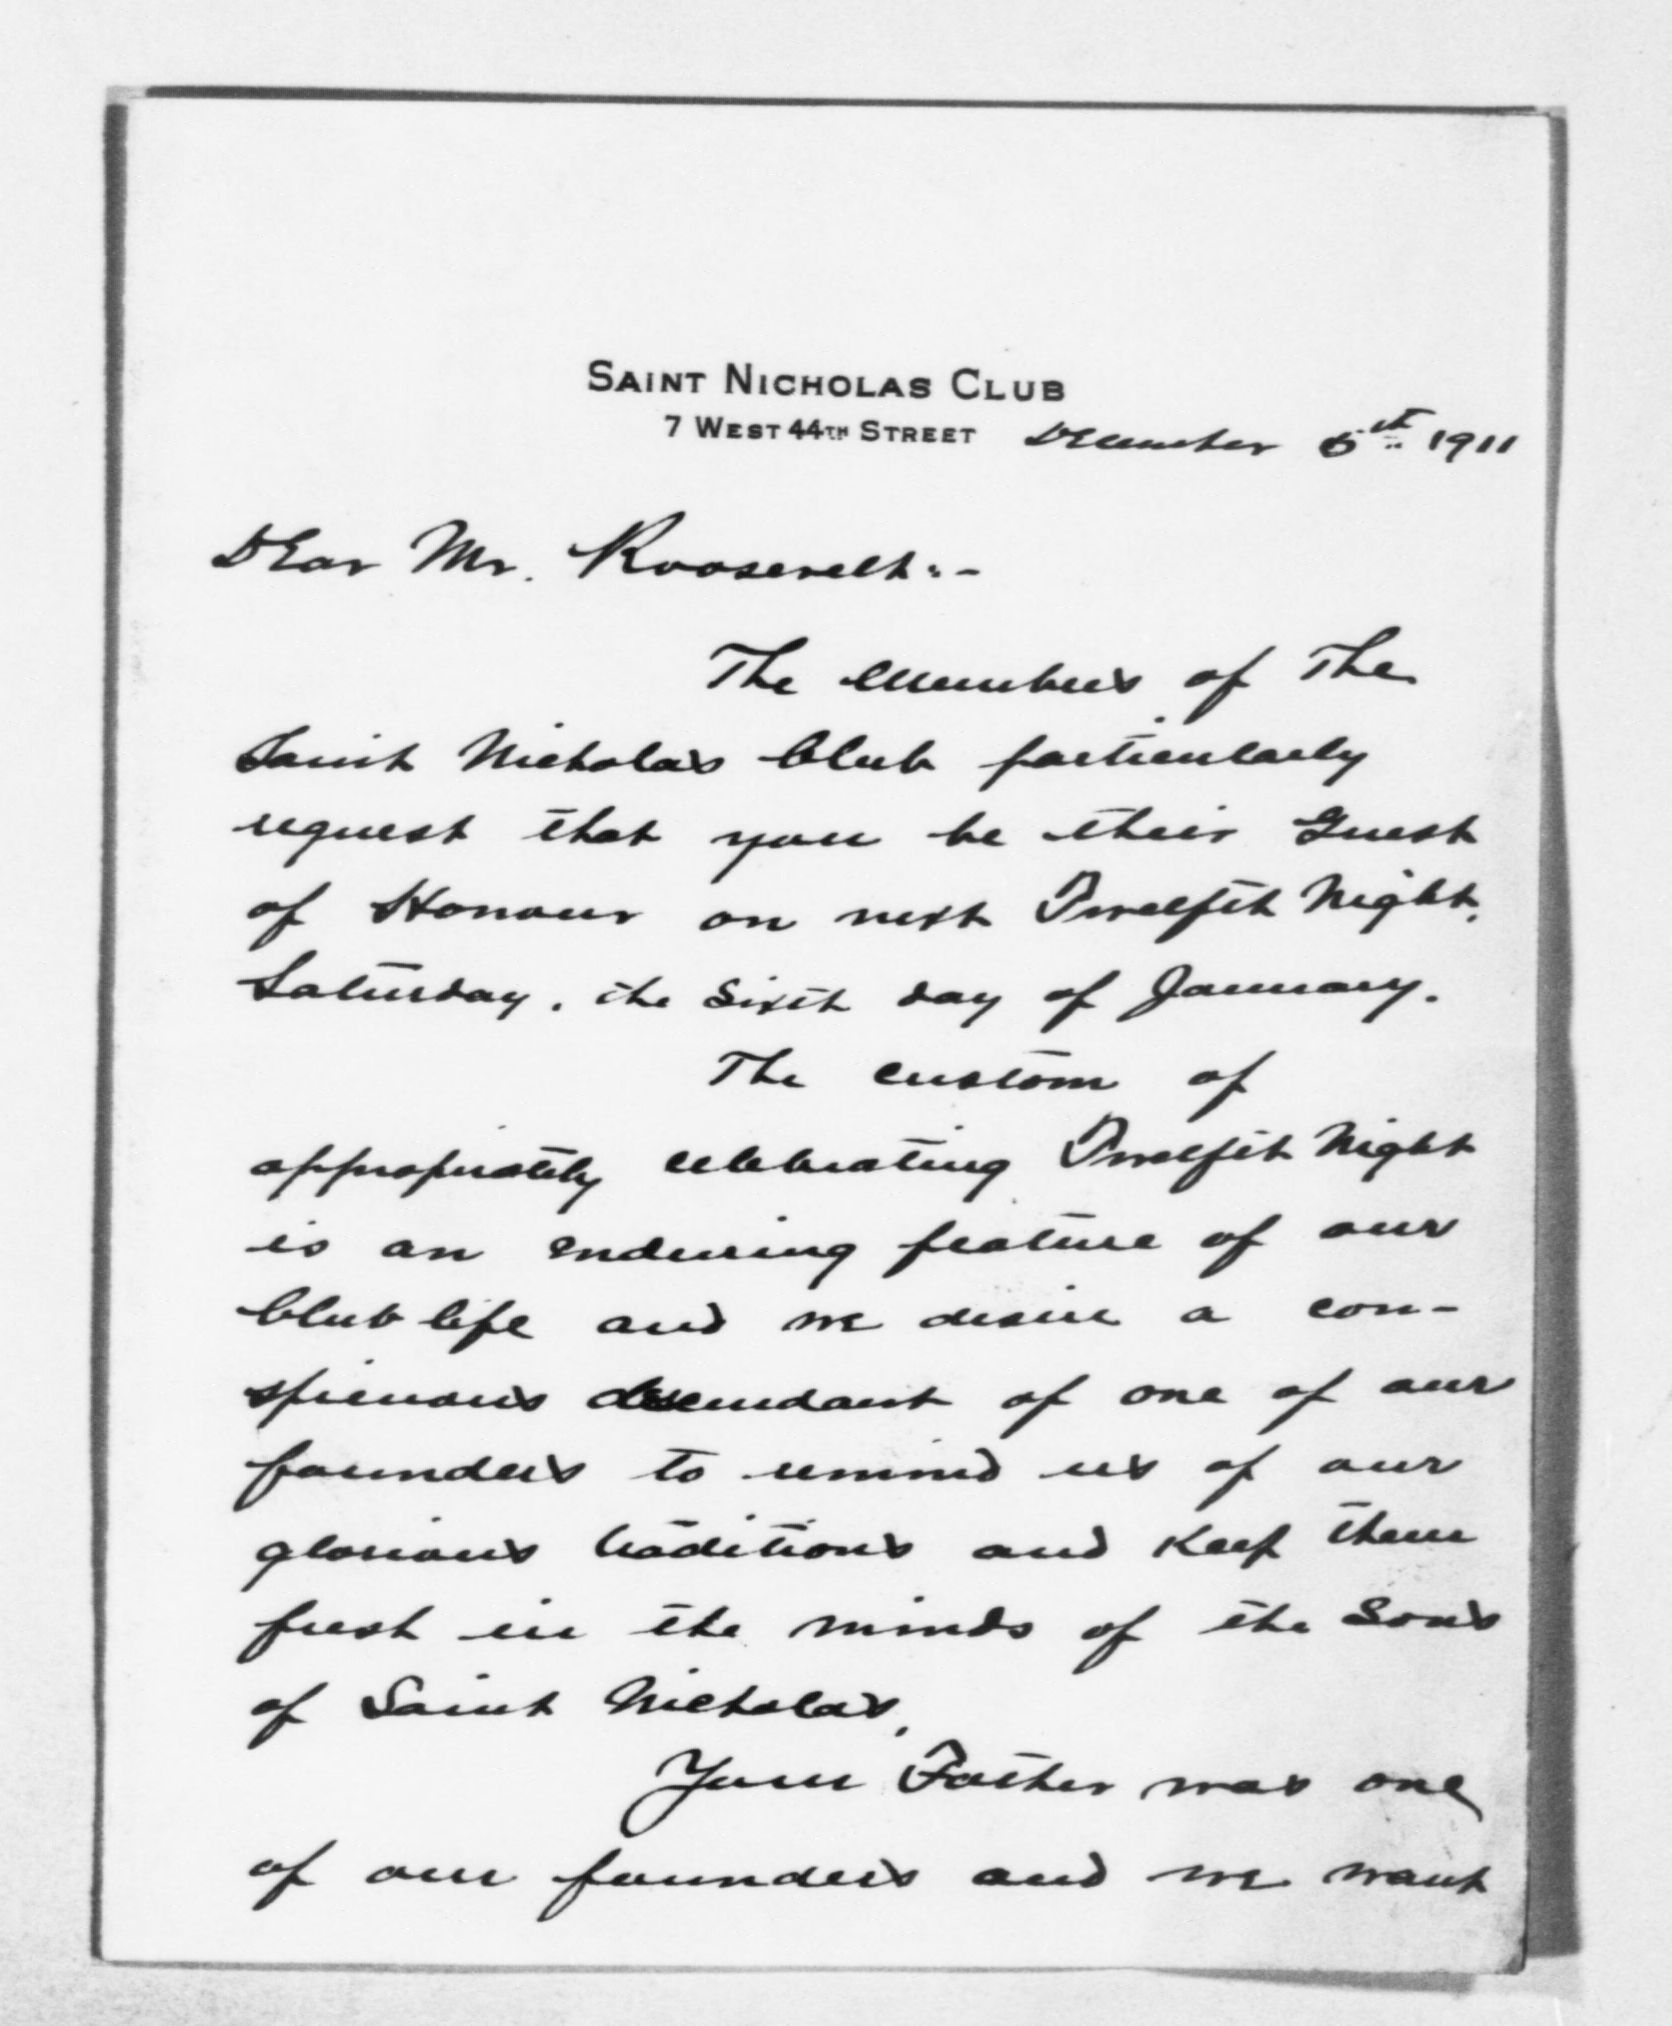 SAINT NICHOLAS CLUB
7 WEST 44TH STREET December 5th 1911
Dear Mr. Roosevelt:-
The members of The
Saint Nicholas Club particularly
request that you be their Guest
of Honour on next Twelfth Night,
Saturday, the sixth day of January.
The custom of
appropriately celebrating Twelfth Night
is an enduring feature of our
Club life and we desire a con-
spicuous descendant of one of our
founders to remind us of our
glorious traditions and keep them
fresh in the minds of the Sons
of Saint Nicholas.
Your Father was one
of our founders and we want